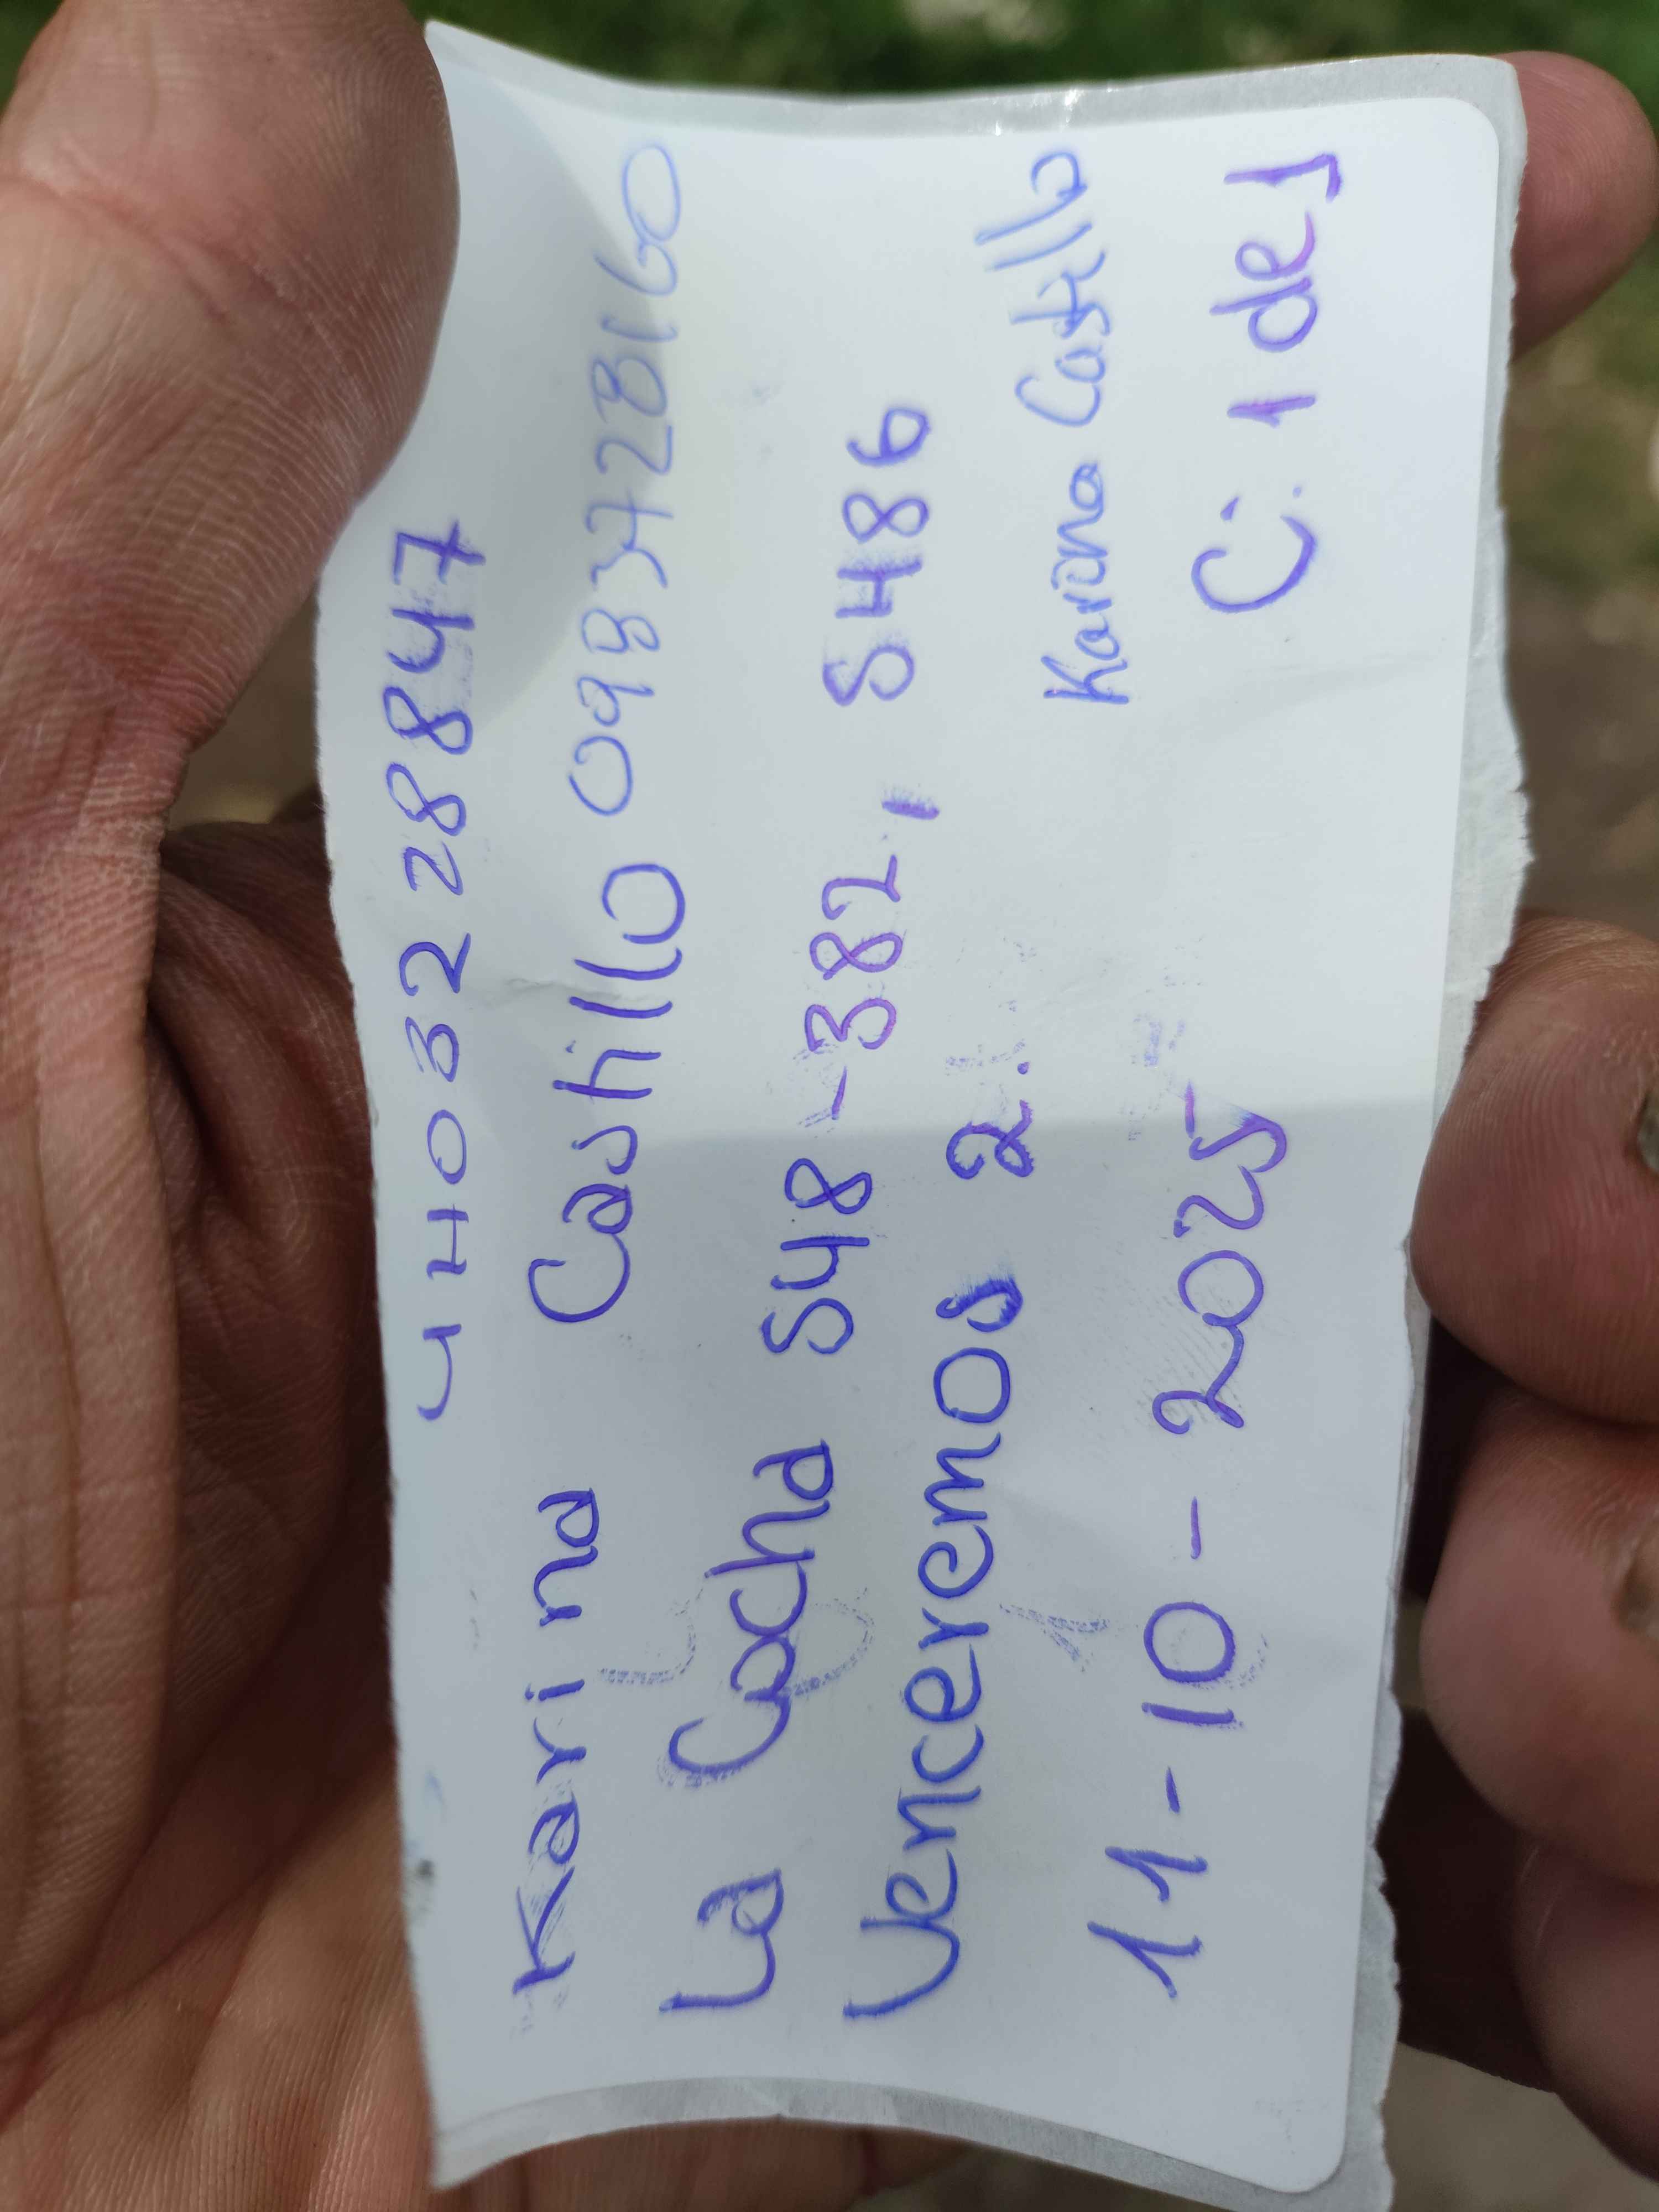 4403228847
Karina Castillo 0983728160
La Cocha S48-382, S486
Venceremos 2.
Karina Castillo
11-10-2025
C: 1 de 1